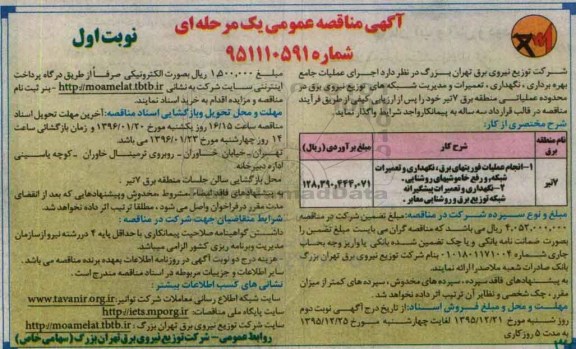 آگهی مناقصه عمومی یک مرحله ای
شماره ۹۵۱۱۱۰۵۹۱
نوبت اول
شرکت توزیع نیروی برق تهران بزرگ در نظر دارد اجرای عملیات جامع
بهره برداری ، نگهداری ، تعمیرات و مدیریت شبکه های توزیع نیروی برق در
محدوده عملیاتی منطقه برق ۷تیر خود را پس از ارزیابی کیفی از طریق فرآیند
مناقصه در قالب قرارداد سه ساله به پیمانکار واجد شرایط واگذار نماید.
شرح مختصری از کار:
نام منطقه برق
شرح کار
مبلغ برآوردی (ریال)
۷تیر
۱-انجام عملیات فوریتهای برق ، نگهداری و تعمیرات
شبکه ، و رفع خاموشیهای روشنایی .
۲-نگهداری و تعمیرات پیشگیرانه
شبکه توزیع برق و روشنایی معابر .
۱۲۸,۳۹۰,۴۴۴,۰۷۱
مبلغ و نوع سپرده شرکت در مناقصه: مبلغ تضمین شرکت در مناقصه
۴,۰۵۲,۰۰۰,۰۰۰ ریال می باشد که مناقصه گران می بایست مبلغ تضمین را
بصورت ضمانت نامه بانکی و یا چک تضمین شده بانکی یا واریز وجه بحساب
جاری شماره ۰۱۰۱۸۰۱۱۷۱۰۰۴ بنام شرکت توزیع نیروی برق تهران بزرگ
بانک صادرات شعبه ملاصدرا ارائه نمایند.
به پیشنهادهای فاقد سپرده ، سپرده های مخدوش ، سپرده های کمتر از میزان
مقرر ، چک شخصی و نظایر آن ترتیب اثر داده نخواهد شد.
مهلت و محل و مبلغ فروش اسناد: از تاریخ درج آگهی نوبت دوم
روز شنبه مورخ ۱۳۹۵/۱۲/۲۱ لغایت چهارشنبه مورخ ۱۳۹۵/۱۲/۲۵
به مدت ۵ روز کاری
مبلغ ۱,۵۰۰,۰۰۰ ریال بصورت الکترونیکی صرفاً از طریق درگاه پرداخت
اینترنتی سایت شرکت به نشانی http://moamelat.tbtb.ir - بنر ثبت نام
مناقصه و مزایده اقدام به خرید اسناد نمایند.
مهلت و محل تحویل و بازگشایی اسناد مناقصه: آخرین مهلت تحویل اسناد
مناقصه ساعت ۱۶/۱۵ روز یکشنبه مورخ ۱۳۹۶/۰۱/۲۰ و زمان بازگشائی ساعت
۱۴ روز چهارشنبه مورخ ۱۳۹۶/۰۱/۲۳ می باشد.
تهران - خیابان خاوران - روبروی ترمینال خاوران - کوچه یاسینی
اداره دبیرخانه
محل بازگشایی سالن جلسات منطقه برق ۷تیر
و پیشنهادهای فاقد امضاء، مشروط، مخدوش و پیشنهادهایی که بعد از انقضای
مدت مقرر در فراخوان واصل می شود ، مطلقا ترتیب اثر داده نخواهد شد.
شرایط متقاضیان جهت شرکت در مناقصه :
داشتن گواهینامه صلاحیت پیمانکاری با حداقل پایه ۴ در رشته نیرو از سازمان
مدیریت وبرنامه ریزی کشور الزامی میباشد
- هزینه درج دو نوبت آگهی در روزنامه اطلاعات بعهده برنده مناقصه می باشد.
سایر اطلاعات و جزییات مربوطه در اسناد مناقصه مندرج است .
نشانی های کسب اطلاعات بیشتر :
سایت شبکه اطلاع رسانی معاملات شرکت توانیر: www.tavanir.org.ir
سایت پایگاه ملی مناقصات: http://iets.mporg.ir
سایت شرکت توزیع نیروی برق تهران بزرگ : http://moamelat.tbtb.ir
روابط عمومی - شرکت توزیع نیروی برق تهران بزرگ (سهامی خاص)